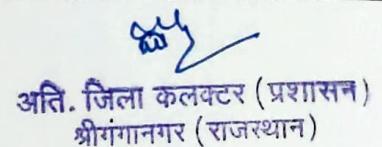 अति. जिला कलक्टर (प्रशासन)
श्रीगंगानगर (राजस्थान)